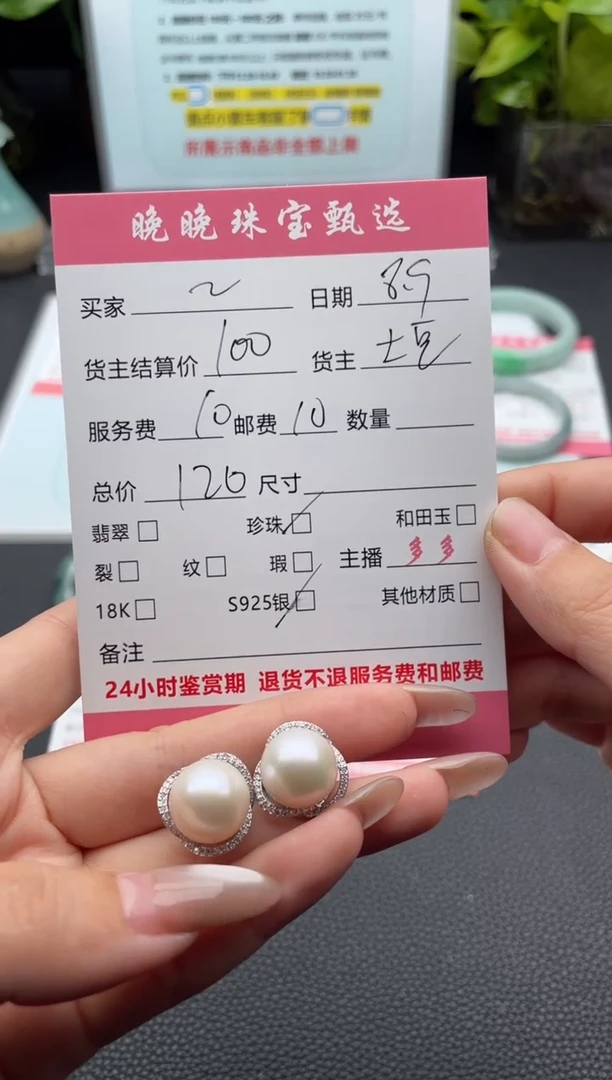 所展示商品非全部上架
晚晚珠宝甄选
买家 ~ 日期 8.9
货主结算价 100 货主 土豆
服务费 10 邮费 10 数量
总价 120 尺寸
翡翠 珍珠 和田玉
裂 纹 瑕 主播 多多
18K S925银 其他材质
备注
24小时鉴赏期 退货不退服务费和邮费